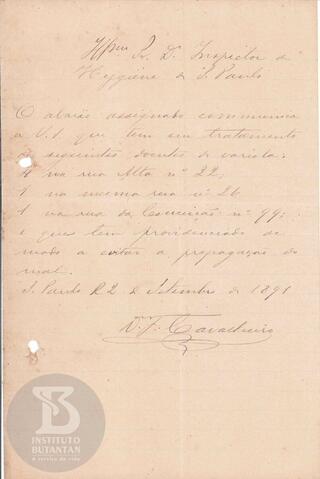 Illmo Sr. Dr. Inspector de
Hygiene de S. Paulo
O abaixo assignado communica
a V. S. que tem em tratamento
os seguintes doentes de variola:
1 na rua Alta nº 22,
1 na mesma rua nº 26
1 na rua da Conceição nº 99;
e que tem providenciado de
modo a evitar a propagação do
mal.
S. Paulo 22 de Setembro de 1891
Cavalheiro
INSTITUTO
BUTANTAN
A serviço da vida